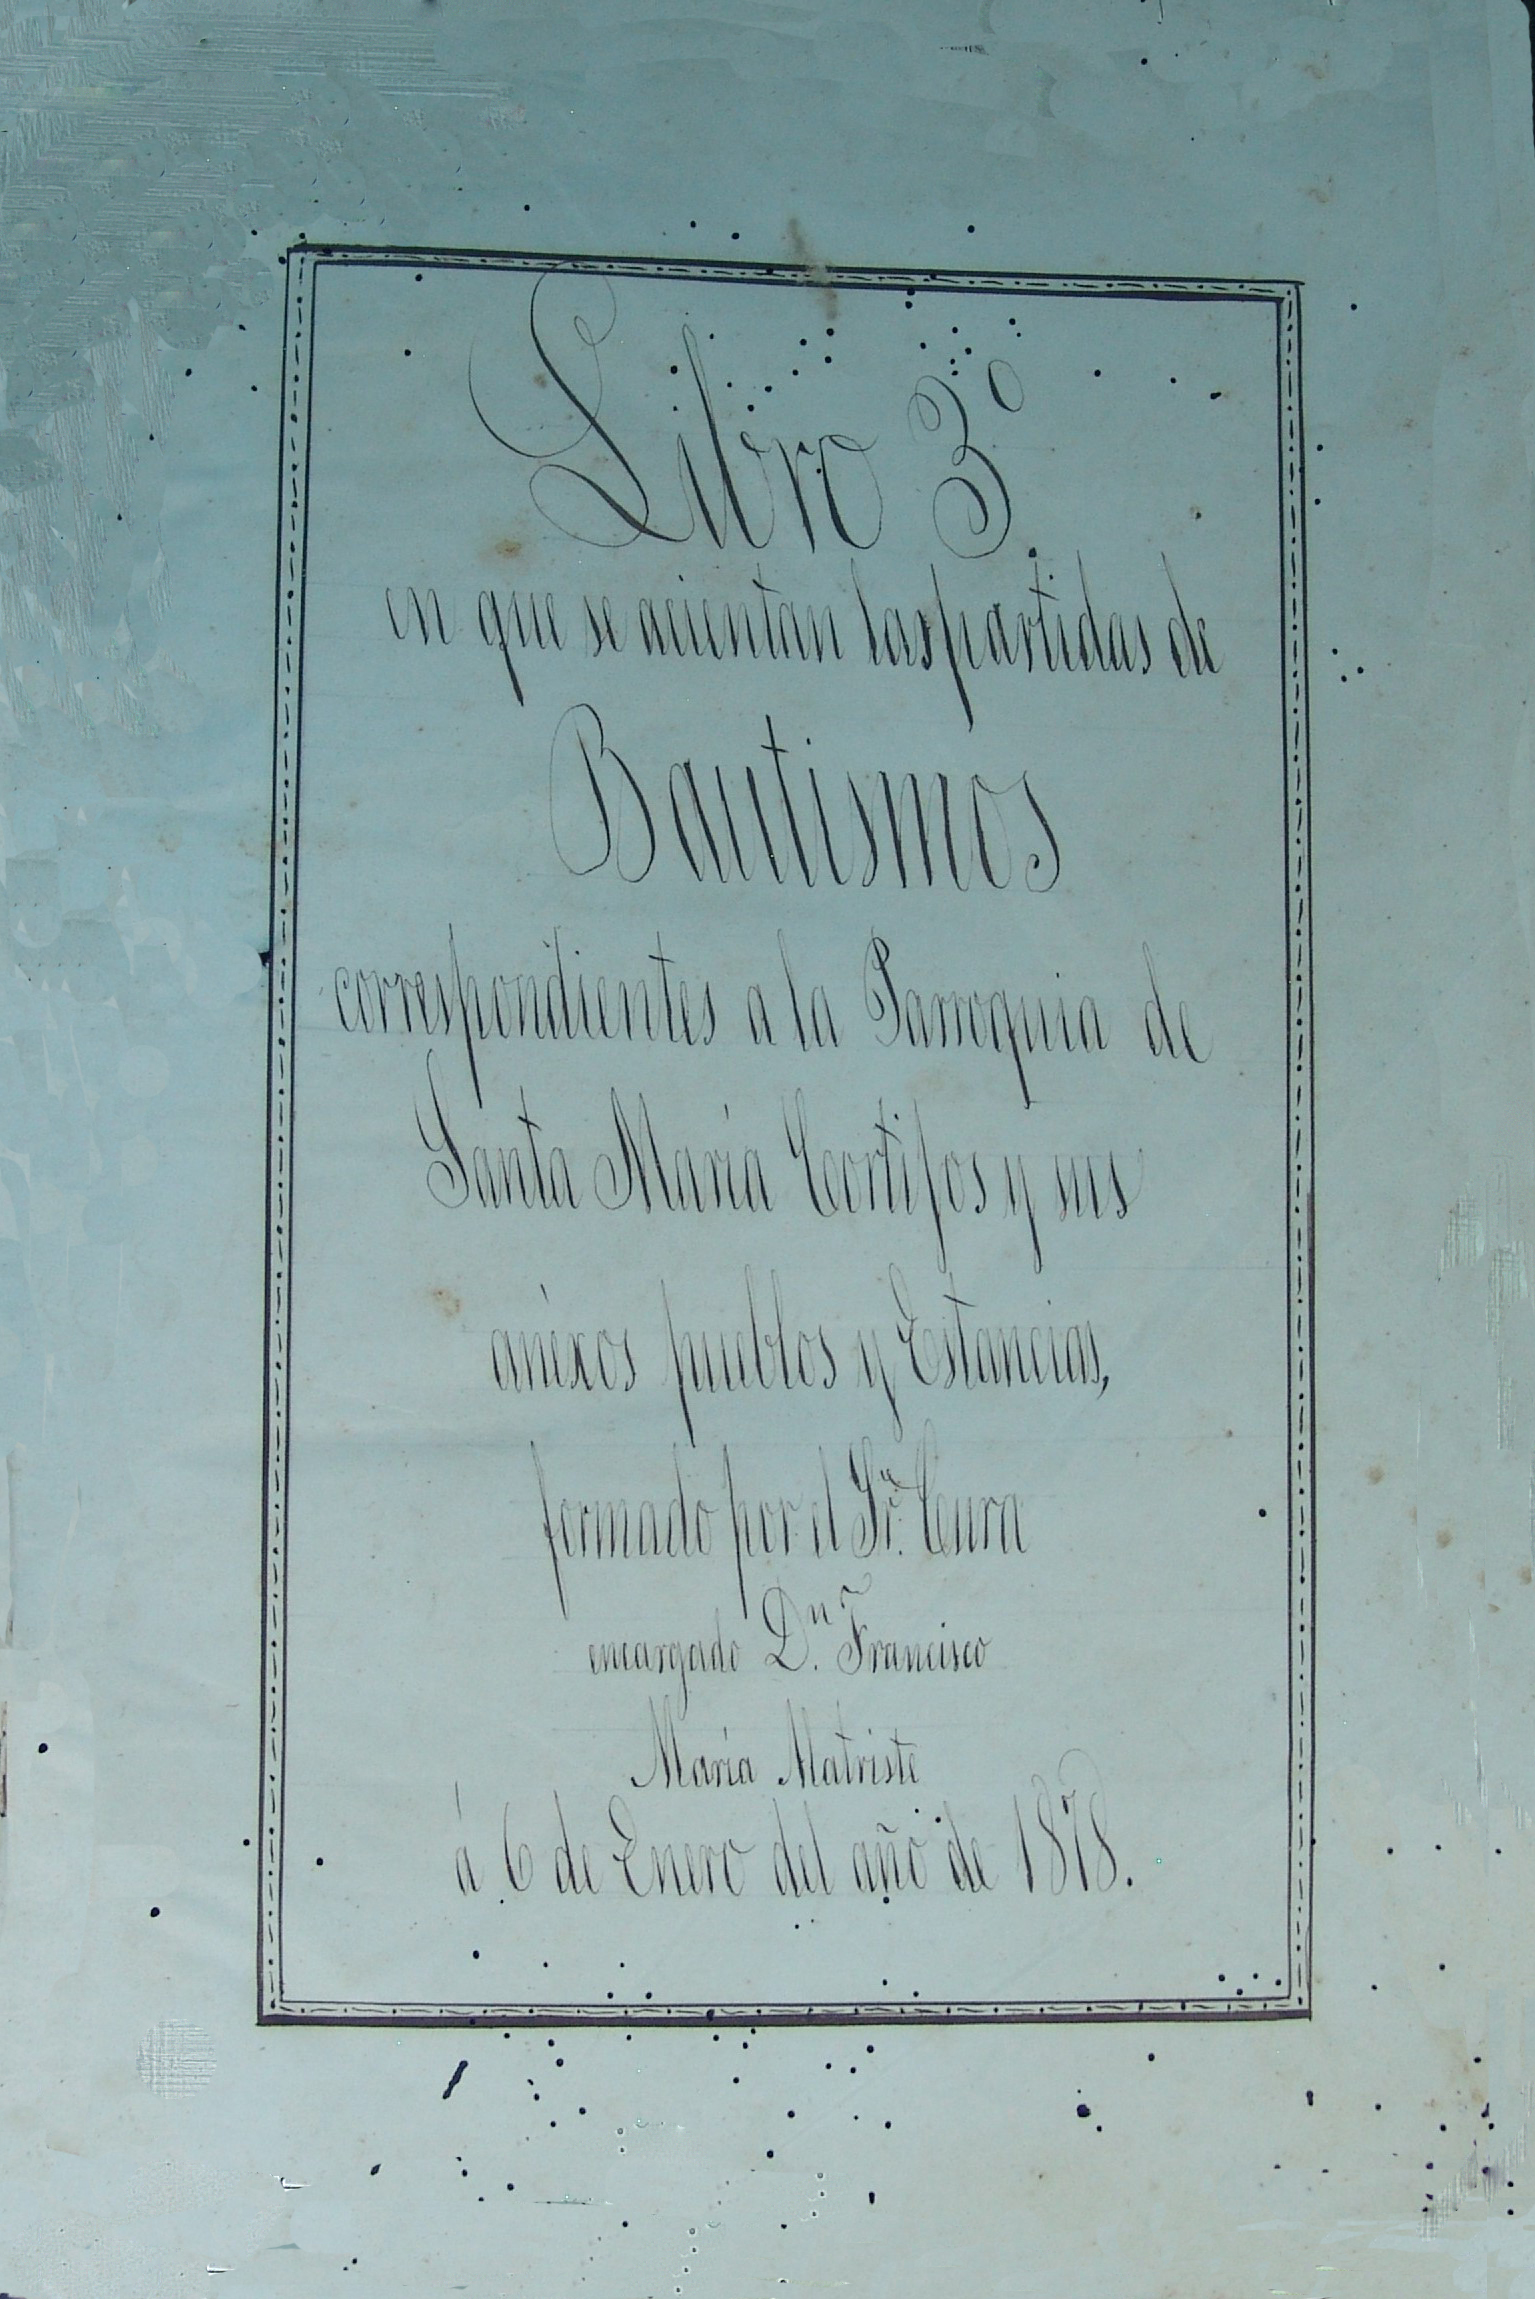 Libro 3º
en que se acientan las partidas de
Bautismos
correspondientes a la Parroquia de
Santa María Cortijos y sus
anéxos pueblos y Estancias,
formado por el Sr. Cura
encargado Dn. Francisco
María Matriste
á 6 de Enero del año de 1878.